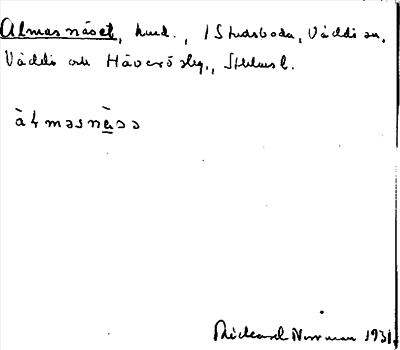 Almarnäset, hund., i Studsboda, Väddö sn,
Väddö och Häverö slg., Sthlms l.
àlmaṣnä̀sə
Rickard Norrman 1931.